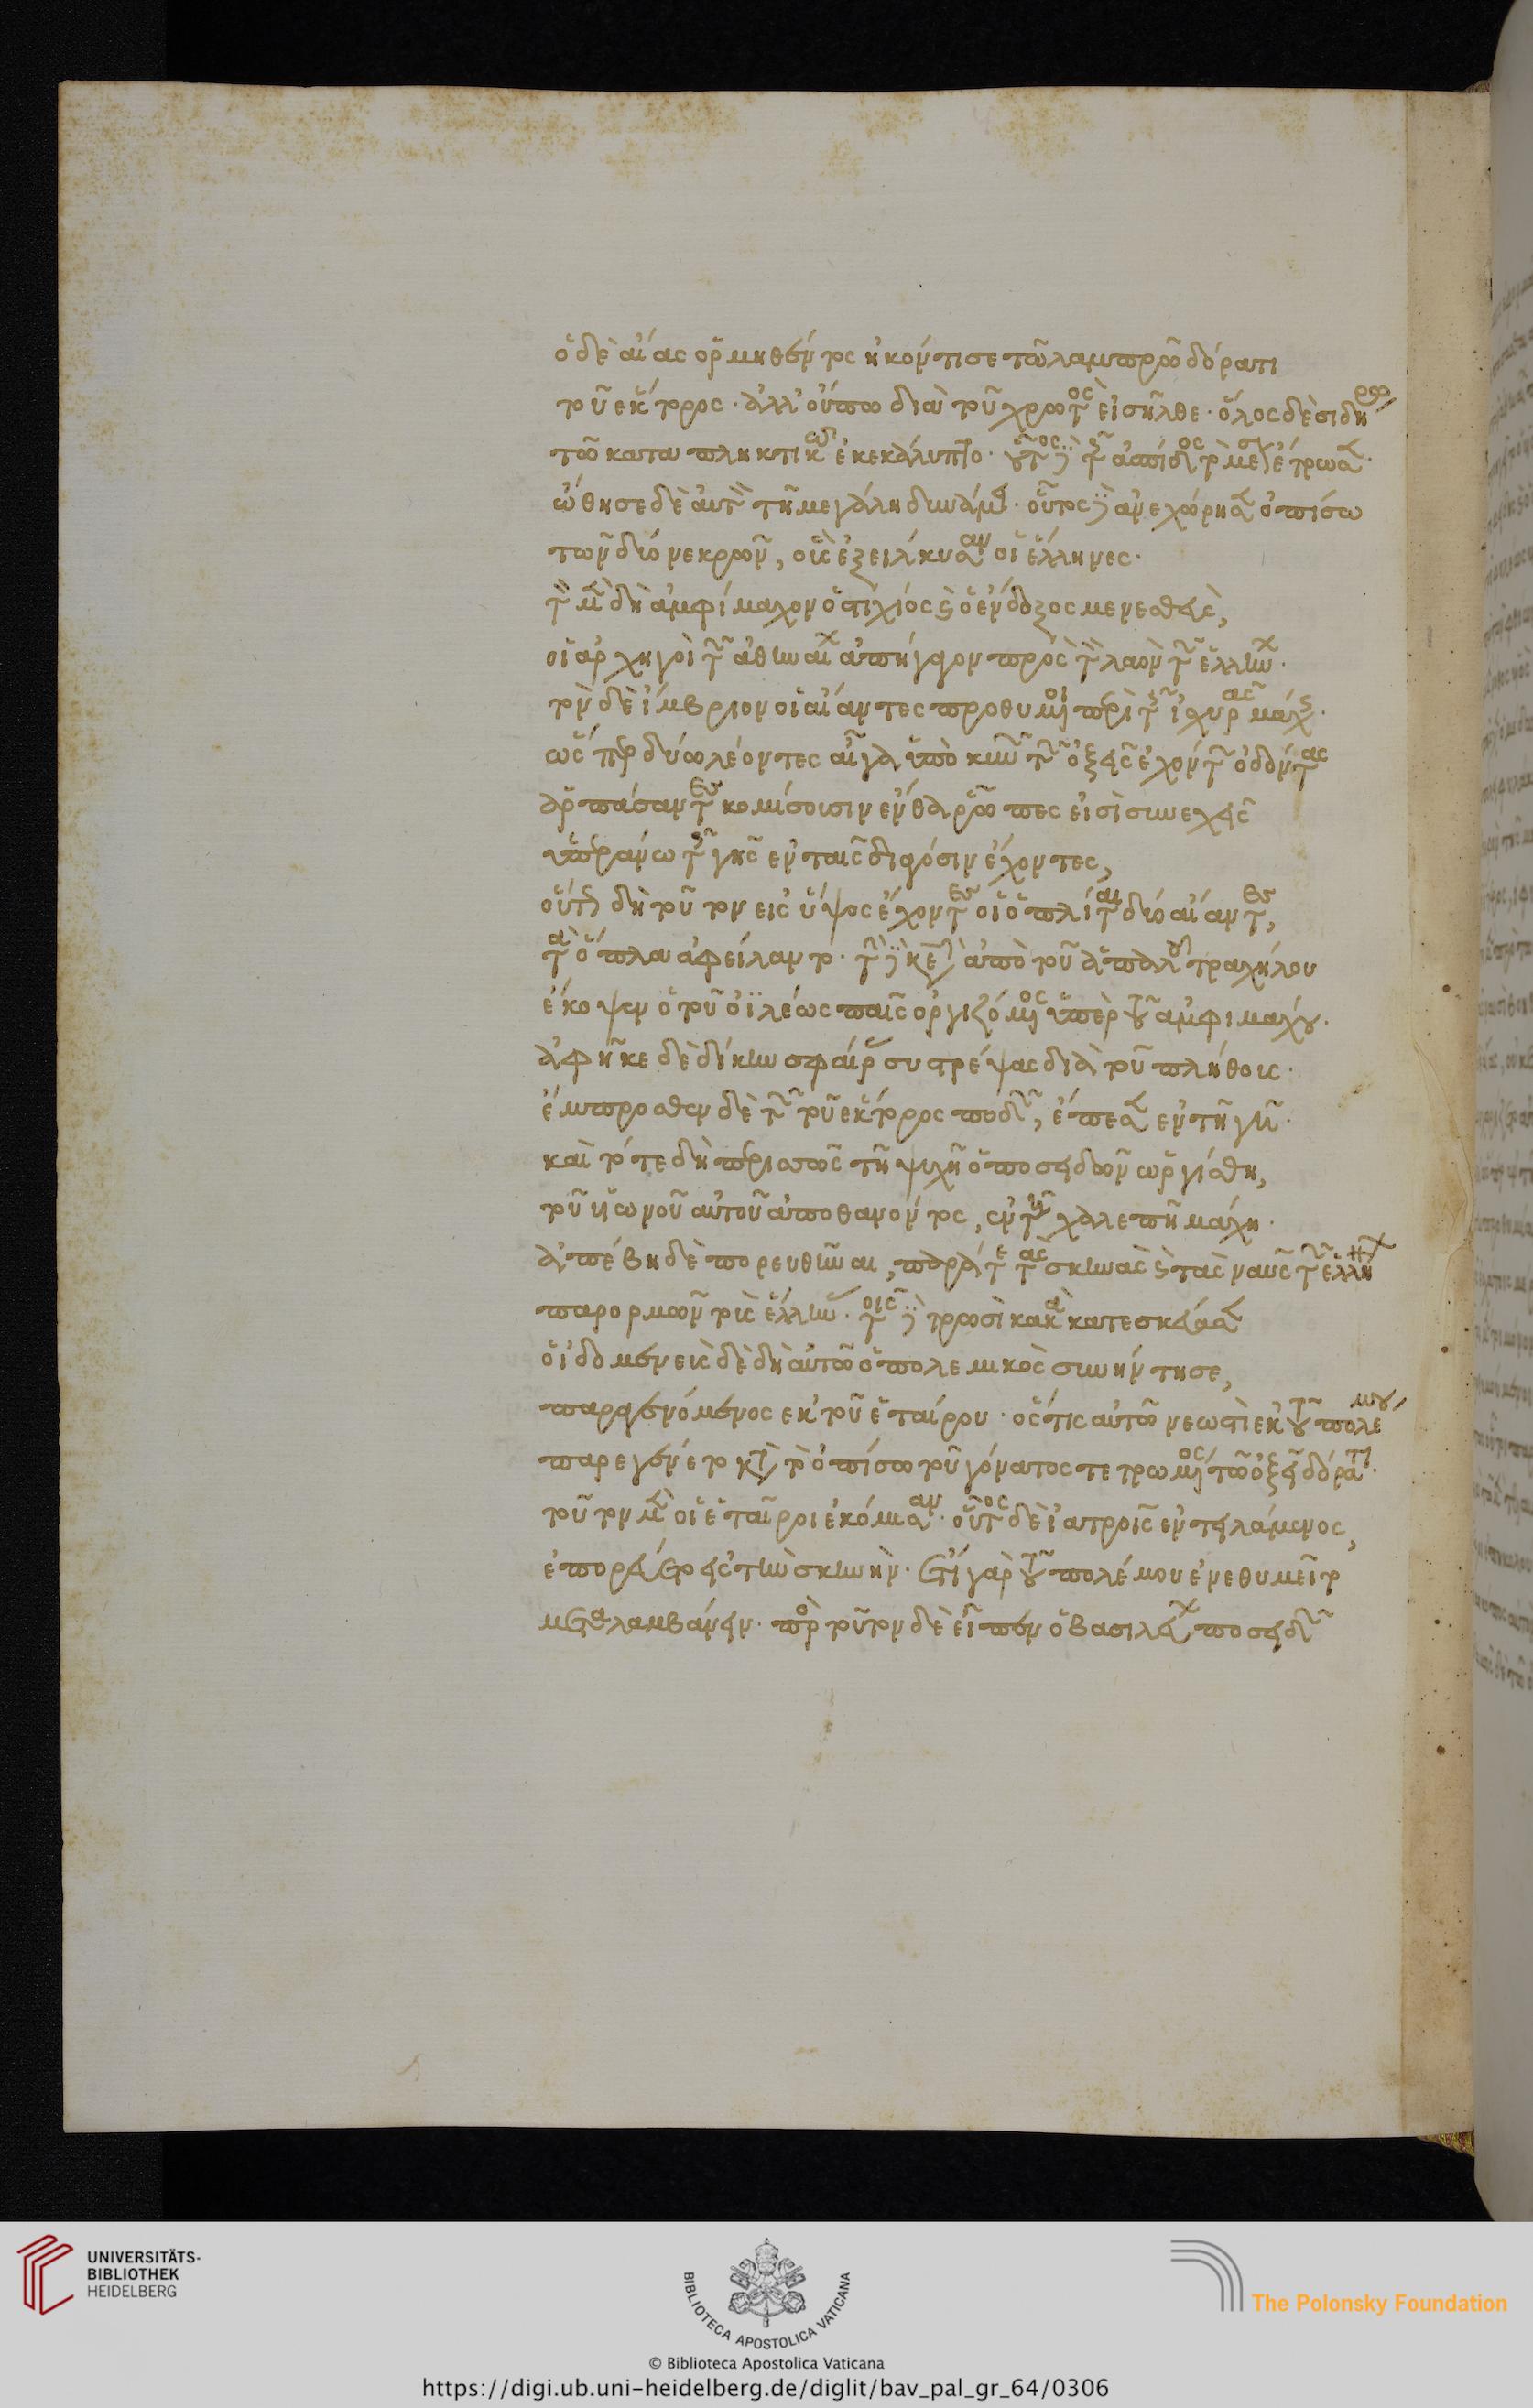 ὁ δὲ αἴας ὁρμηθέντος ἠκόντισε τῶ λαμπρῶ δόρατι
τοῦ ἕκτορος· ἀλλ' οὔπω διὰ τοῦ χρωτὸς εἰσῆλθε· ὅλος δὲ σιδήρω
τῶ καταπληκτικῶ ἐκεκάλυπτο· οὗτος δὲ τῆς ἀσπίδος τὸ μέσον ἔτρωσε·
ὤθησε δὲ αὐτὸν τῆ μεγάλη δυνάμει· οὗτος δὲ ἀνεχώρησε ὀπίσω
τῶν δύο νεκρῶν, οὓς ἐξείλκυσαν οἱ ἕλληνες·
τὸν μὲν δὴ ἀμφίμαχον ὁ στιχίος καὶ ὁ ἔνδοξος μενεσθεὺς,
οἱ ἀρχηγοὶ τῶν ἀθηναίων ἀπήγαγον πρὸς τὸν λαὸν τῶν ἑλλήνων·
τὸν δὲ ἴμβριον οἱ αἴαντες προθυμούμενοι περὶ τῆς ἰσχυρᾶς μάχης·
ὥσπερ δύο λέοντες αἶγα ὑπὸ κυνῶν τῶν ὀξεῖς ἐχόντων ὀδόντας
ἁρπάσαντες κομίσουσιν ἔνθα ῥῶπες εἰσὶ συνεχεῖς
ὑπεράνω τῆς γῆς ἐν ταῖς σιαγόσιν ἔχοντες,
οὕτω δὴ τοῦτον εἰς ὕψος ἔχοντες οἱ ὁπλῖται δύο αἴαντες,
τὰ ὅπλα ἀφείλαντο· τὴν δὲ κεφαλὴν ἀπὸ τοῦ ἁπαλοῦ τραχήλου
ἔκοψεν ὁ τοῦ ὀϊλέως παῖς ὀργιζόμενος ὑπὲρ τοῦ ἀμφιμάχου·
ἀφῆκε δὲ δίκην σφαίρας συστρέψας διὰ τοῦ πλήθους·
ἔμπροσθεν δὲ τῶν τοῦ ἕκτορος ποδῶν, ἔπεσε ἐν τῆ γῆ·
καὶ τότε δὴ περισσῶς τῆ ψυχῆ ὁ ποσειδῶν ὠργίσθη,
τοῦ υἱωνοῦ αὐτοῦ ἀποθανόντος, ἐν τῆ χαλεπῆ μάχη·
ἀπέβη δὲ πορευθῆναι, παρά τε τὰς σκηνὰς καὶ τὰς ναῦς τῶν ἑλλήνων
παρορμῶν τοὺς ἕλληνας· τοῖς δὲ τρωσὶ κακὰ κατεσκεύασε
ὁ ἰδομενεὺς δὲ δὴ αὐτῶ ὁ πολεμικὸς συνήντησε,
παραγενόμενος ἐκ τοῦ ἑταίρου· ὅστις αὐτῶ νεωστὶ ἐκ τοῦ πολέμου
παρεγένετο κατὰ τὸ ὀπίσω τοῦ γόνατος τετρωμένος τῶ ὀξεῖ δόρατι·
τοῦτον μὲν οἱ ἑταῖροι ἐκόμισαν· οὗτος δὲ ἰατροῖς ἐντειλάμενος,
ἐπορεύετο εἰς τὴν σκηνήν· ἔτι γὰρ τοῦ πολέμου ἐνεθυμεῖτο
μεταλαμβάνειν· πρὸς τοῦτον δὲ εἶπεν ὁ βασιλεὺς ποσειδῶν
UNIVERSITÄTS-
BIBLIOTHEK
HEIDELBERG
BIBLIOTECA APOSTOLICA VATICANA
The Polonsky Foundation
© Biblioteca Apostolica Vaticana
https://digi.ub.uni-heidelberg.de/diglit/bav_pal_gr_64/0306